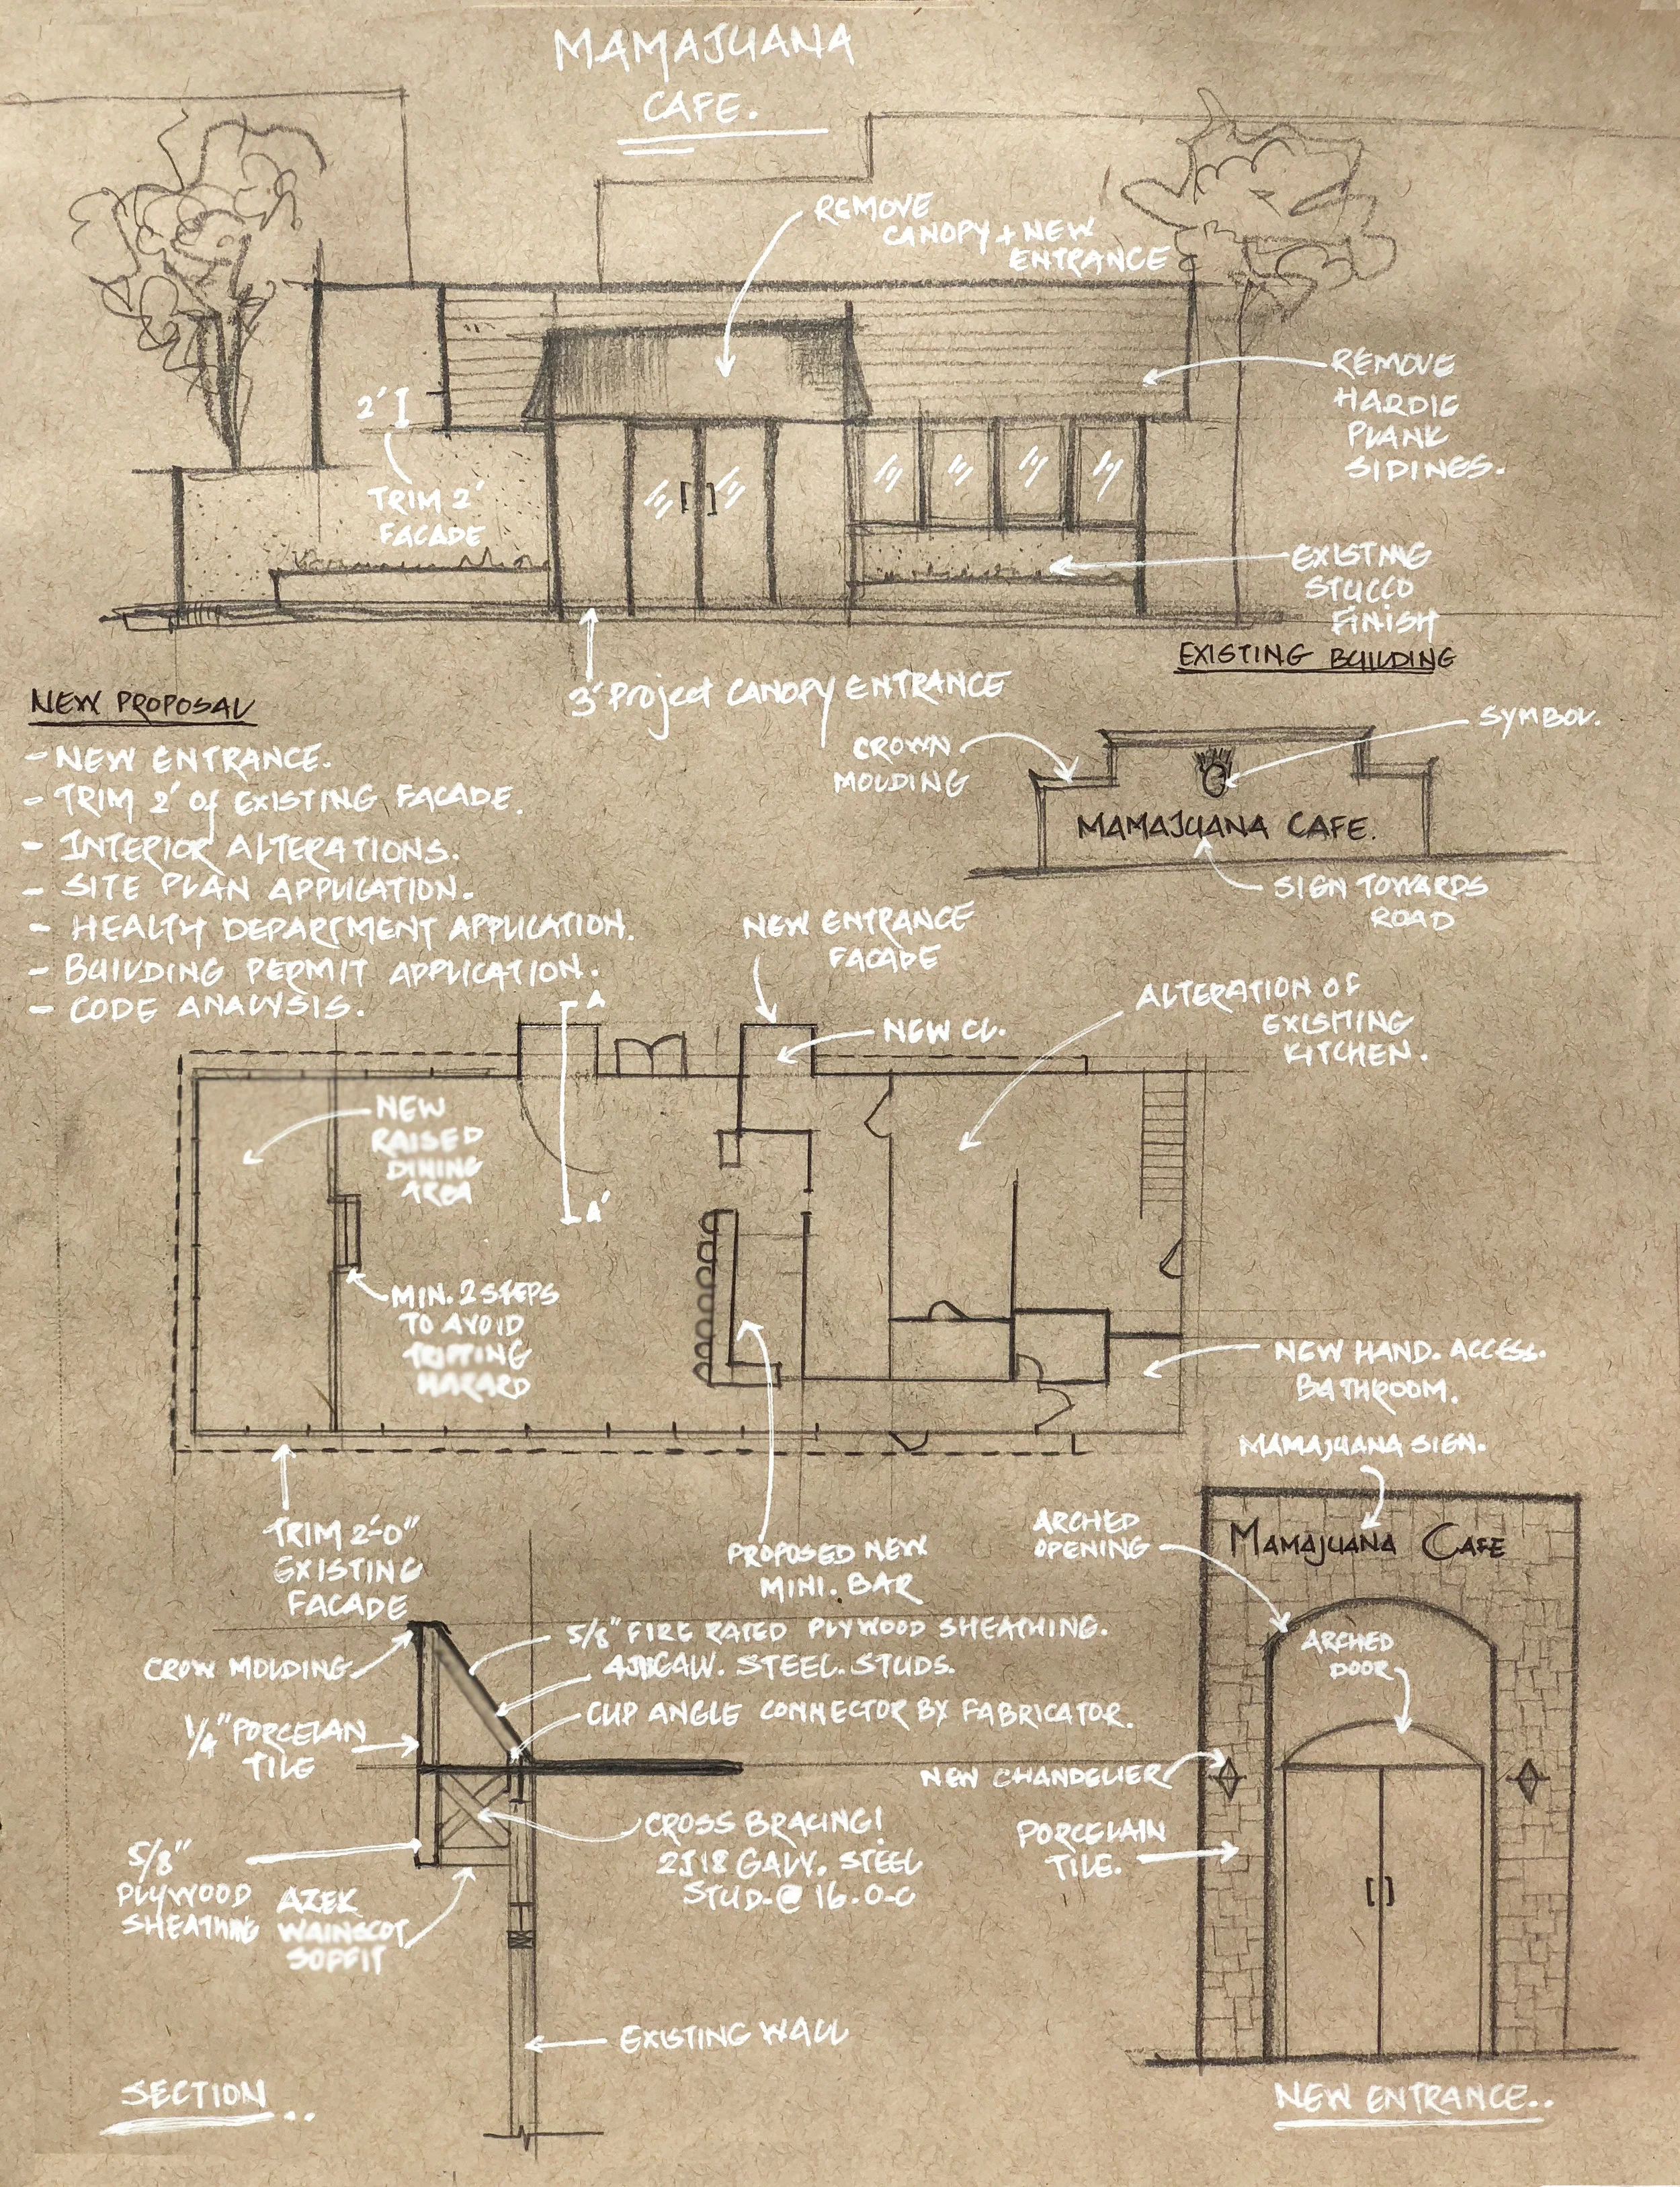 MAMAJUANA
CAFE.
REMOVE
CANOPY + NEW
ENTRANCE
REMOVE
HARDIE
PLANK
SIDINES.
2'
TRIM 2'
FACADE
EXISTING
STUCCO
FINISH
EXISTING BUILDING
3' Project CANOPY ENTRANCE
NEW PROPOSAL
- NEW ENTRANCE.
- TRIM 2' of EXISTING FACADE.
- INTERIOR ALTERATIONS.
- SITE PLAN APPLICATION.
- HEALTH DEPARTMENT APPLICATION.
- BUILDING PERMIT APPLICATION.
- CODE ANALYSIS.
SYMBOL.
CROWN
MOLDING
MAMAJUANA CAFE.
SIGN TOWARDS
ROAD
NEW ENTRANCE
FACADE
A
NEW CL.
ALTERATION OF
EXISTING
KITCHEN.
NEW
RAISED
DINING
AREA
A'
MIN. 2 STEPS
TO AVOID
TRIPPING
HAZARD
NEW HAND. ACCESS.
BATHROOM.
TRIM 2'-0"
EXISTING
FACADE
PROPOSED NEW
MINI. BAR
MAMAJUANA SIGN.
ARCHED
OPENING
MAMAJUANA CAFE
ARCHED
DOOR
NEW CHANDELIER
PORCELAIN
TILE.
NEW ENTRANCE..
CROW MOLDING
5/8" FIRE RATED PLYWOOD SHEATHING.
GALV. STEEL. STUDS.
CLIP ANGLE CONNECTOR BY FABRICATOR.
1/4" PORCELAN
TILE
CROSS BRACING!
2J18 GALV. STEEL
STUD-@ 16.O-C
5/8"
PLYWOOD
SHEATHING
AZEK
WAINSCOT
SOFFIT
EXISTING WALL
SECTION..